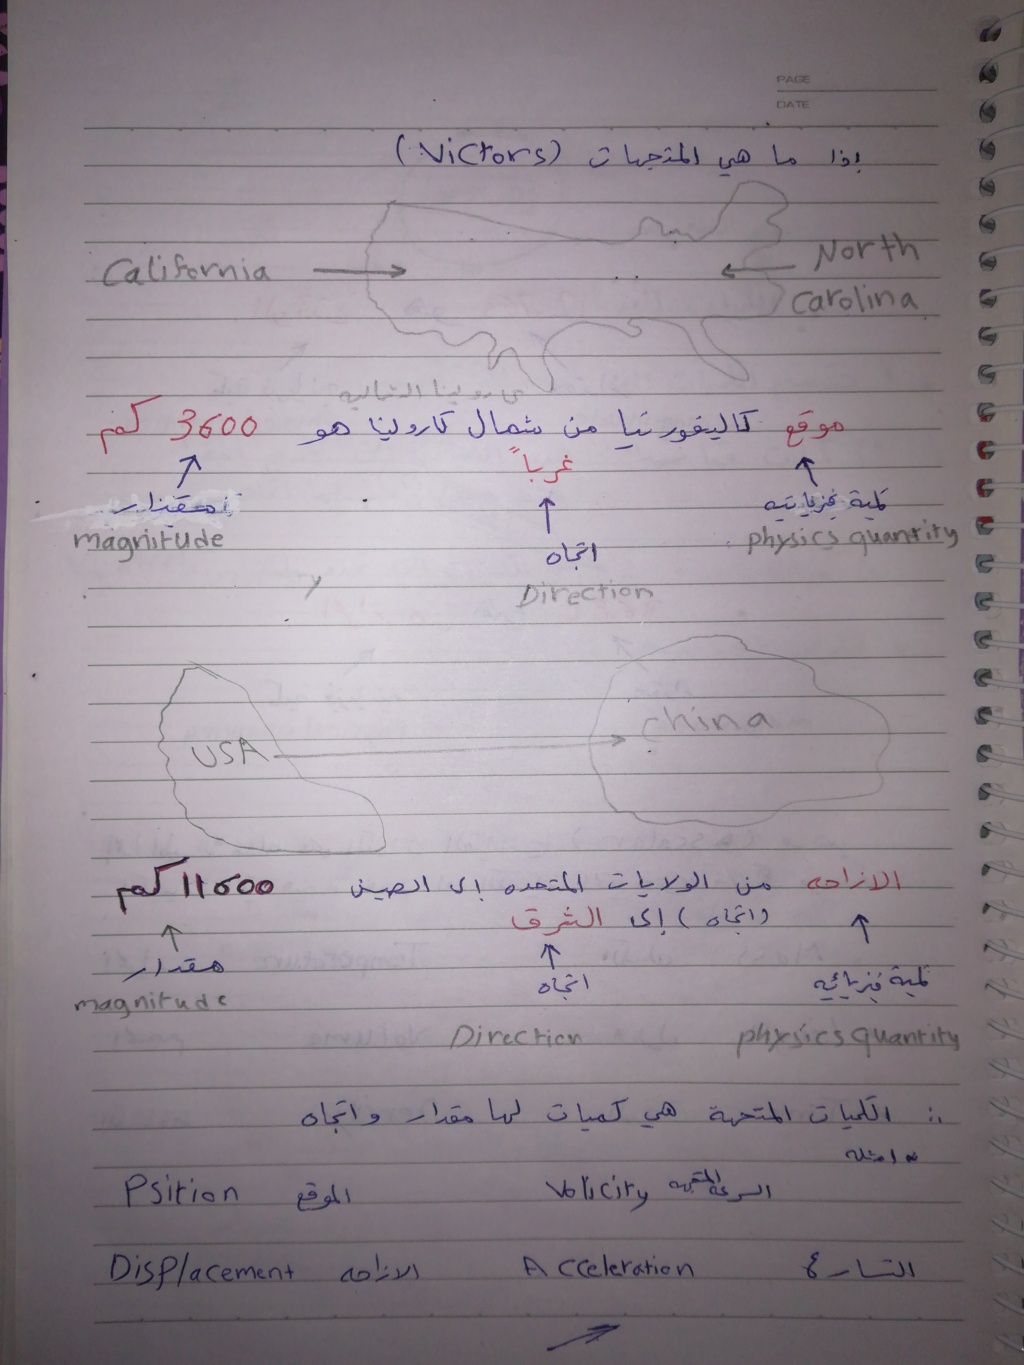 PAGE
DATE
إذا ما هي المتجهات (Victors)
California
North
Carolina
كارولينا الشماليه
موقع كاليفورنيا من شمال كارولينا هو 3600 كم
غرباً
كمية فيزيائيه
مقدار
magnitude
physics quantity
اتجاه
Direction
USA
china
الازاحه من الولايات المتحده إلى الصين 11600 كم
(اتجاه) إلى الشرق
كمية فيزيائيه
اتجاه
مقدار
magnitude
Direction
physics quantity
∴ الكميات المتجهة هي كميات لها مقدار و اتجاه
امثله
السرعة المتجهه Volicity الموقع Psition
التسارع Acceleration الازاحه Displacement